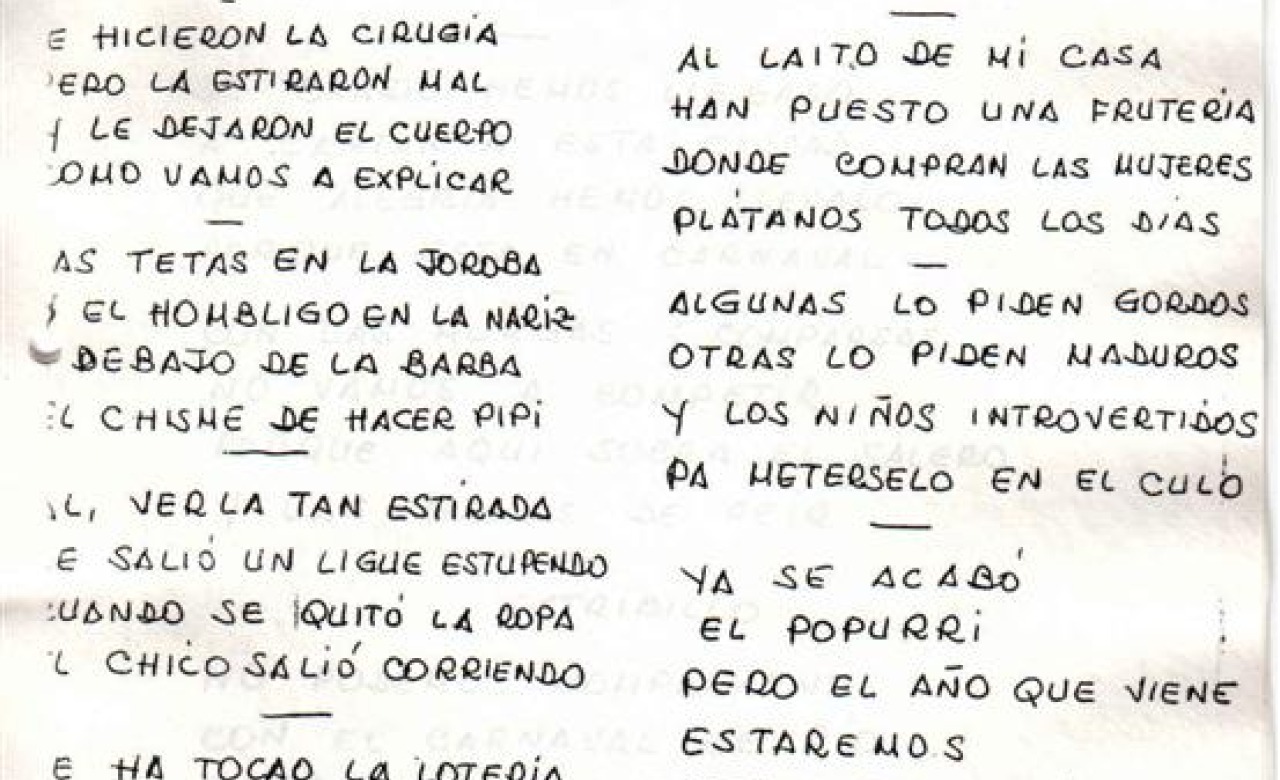 E HICIERON LA CIRUGÍA
ERO LA ESTIRARON MAL
Y LE DEJARON EL CUERPO
OMO VAMOS A EXPLICAR
—
AS TETAS EN LA JOROBA
Y EL HOMBLIGO EN LA NARIZ
DEBAJO DE LA BARBA
EL CHISME DE HACER PIPÍ
—
L, VERLA TAN ESTIRADA
E SALIÓ UN LIGUE ESTUPENDO
CUANDO SE QUITÓ LA ROPA
L CHICO SALIÓ CORRIENDO
—
E HA TOCAO LA LOTERÍA
—
AL LAITO DE MI CASA
HAN PUESTO UNA FRUTERÍA
DONDE COMPRAN LAS MUJERES
PLÁTANOS TODOS LOS DÍAS
—
ALGUNAS LO PIDEN GORDOS
OTRAS LO PIDEN MADUROS
Y LOS NIÑOS INTROVERTIDOS
PA METERSELO EN EL CULO
—
YA SE ACABÓ
EL POPURRÍ
PERO EL AÑO QUE VIENE
ESTAREMOS